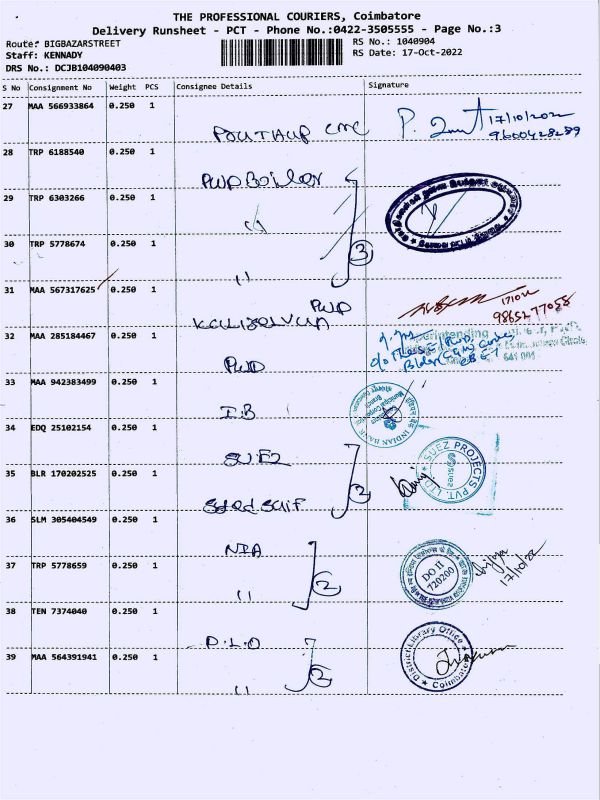 THE PROFESSIONAL COURIERS, Coimbatore
Delivery Runsheet - PCT - Phone No.:0422-3505555 - Page No.:3
Route: BIGBAZARSTREET
RS No.: 1040904
Staff: KENNADY
RS Date: 17-Oct-2022
DRS No.: DCJB104090403
S No Consignment No Weight PCS Consignee Details Signature
27 MAA 566933864 0.250 1
17/10/2022
9600428289
28 TRP 6188540 0.250 1
PWD Boiler
29 TRP 6303266 0.250 1
"
30 TRP 5778674 0.250 1
"
3
31 MAA 567317625 0.250 1
PWD
9865277058
32 MAA 285184467 0.250 1
PWD
33 MAA 942383499 0.250 1
I.B
INDIAN BANK
34 EDQ 25102154 0.250 1
SUEZ
SUEZ PROJECTS PVT. LTD.
SUEZ
35 BLR 170202525 0.250 1
Syed Saif
2
36 SLM 305404549 0.250 1
NIA
37 TRP 5778659 0.250 1
"
2
DO II
720200
17/10/22
38 TEN 7374040 0.250 1
D.L.O
District Library Office
Coimbatore
39 MAA 564391941 0.250 1
"
2